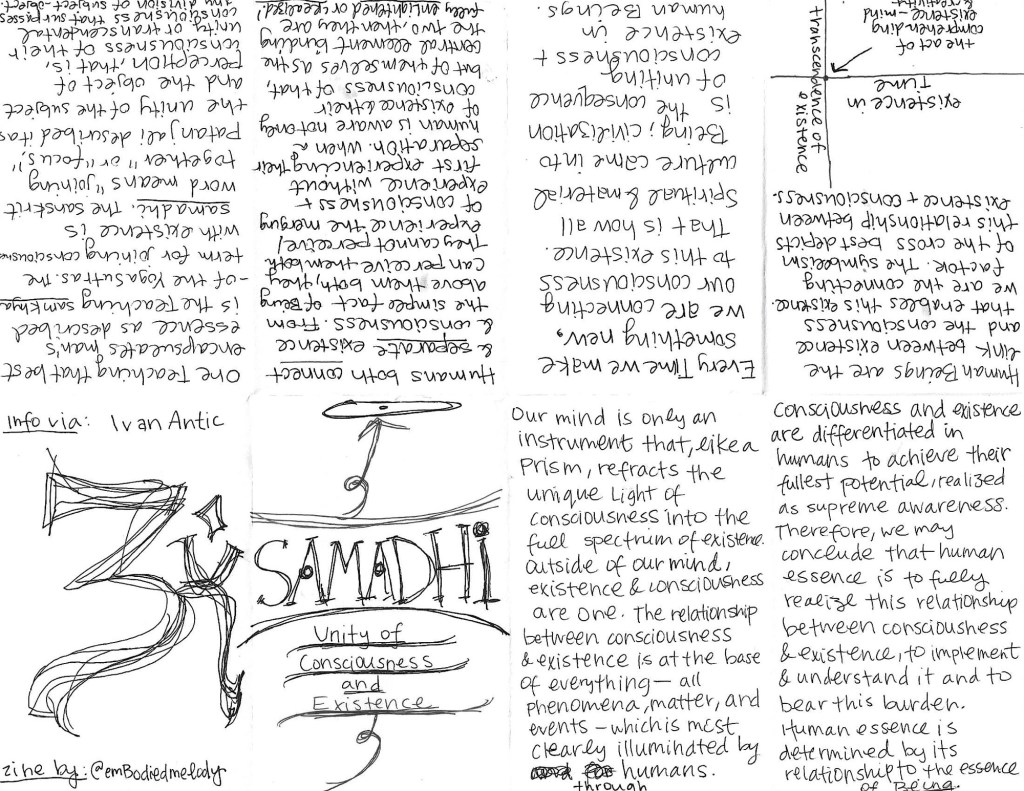 SAMADHi
Unity of
Consciousness
and
Existence
Our mind is only an
instrument that, like a
Prism, refracts the
unique Light of
consciousness into the
full spectrum of existence.
Outside of our mind,
existence & consciousness
are one. The relationship
between consciousness
& existence is at the base
of everything — all
phenomena, matter, and
events — which is most
clearly illumindted by
humans.
through
Consciousness and existence
are differentiated in
humans to achieve their
fullest potential, realized
as supreme awareness.
Therefore, we may
conclude that human
essence is to fully
realize this relationship
between consciousness
& existence, to implement
& understand it and to
bear this burden.
Human essence is
determined by its
relationship to the essence
of Being.
Human Beings are the
link between existence
and the consciousness
that enables this existence.
we are the connecting
factor. The symbolism
of the cross best depicts
this relationship between
existence + consciousness.
transcendence of
existence
existence in
Time
the act of
comprehending
existence, mind
& creativity
Every Time we make
something new,
we are connecting
our consciousness
to this existence.
That is how all
Spiritual & material
culture came into
Being; civilization
is the consequence
of uniting
consciousness +
existence in
human Beings.
Humans both connect
& separate existence
& consciousness. From
the simple fact of Being
above them both, they
can perceive them both.
They cannot perceive/
experience the merging
of consciousness +
experience without
first experiencing their
separation. When a
human is aware not only
of existence & their
consciousness of that,
but of themselves as the
central element binding
the two, then they are
fully enlightened or realized!
One Teaching that best
encapsulates man's
essence as described
is the Teaching samkhya
- of the Yoga Sutras. The
term for joining consciousness
with existence is
samadhi. The sanskrit
word means "joining
together" or "focus";
Patanjali described it as
the unity of the subject
and the object of
perception, that is,
consciousness of their
unity or transcendental
consciousness that surpasses
any division of subject-object.
Info via: Ivan Antic
zine by: @emBodiedmelody